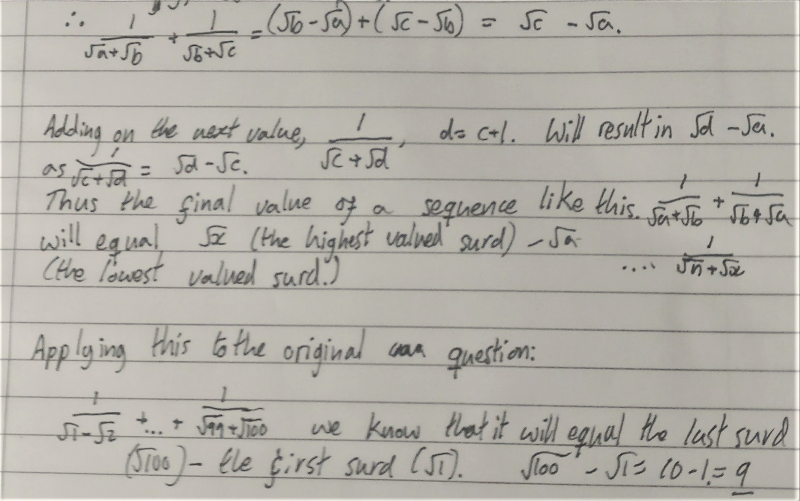 ∴ 1/(√a+√b) + 1/(√b+√c) = (√b-√a)+(√c-√b) = √c -√a.
Adding on the next value, 1/(√c+√d), d=c+1. Will result in √d -√a.
as 1/(√c+√d) = √d-√c.
Thus the final value of a sequence like this. 1/(√a+√b) + 1/(√b+√a)
will equal √x (the highest valued surd) -√a .... 1/(√n+√x)
(the lowest valued surd.)
Applying this to the original question:
1/(√1-√2) +...+ 1/(√99+√100) we know that it will equal the last surd
(√100)- the first surd (√1). √100 -√1= 10-1.= 9